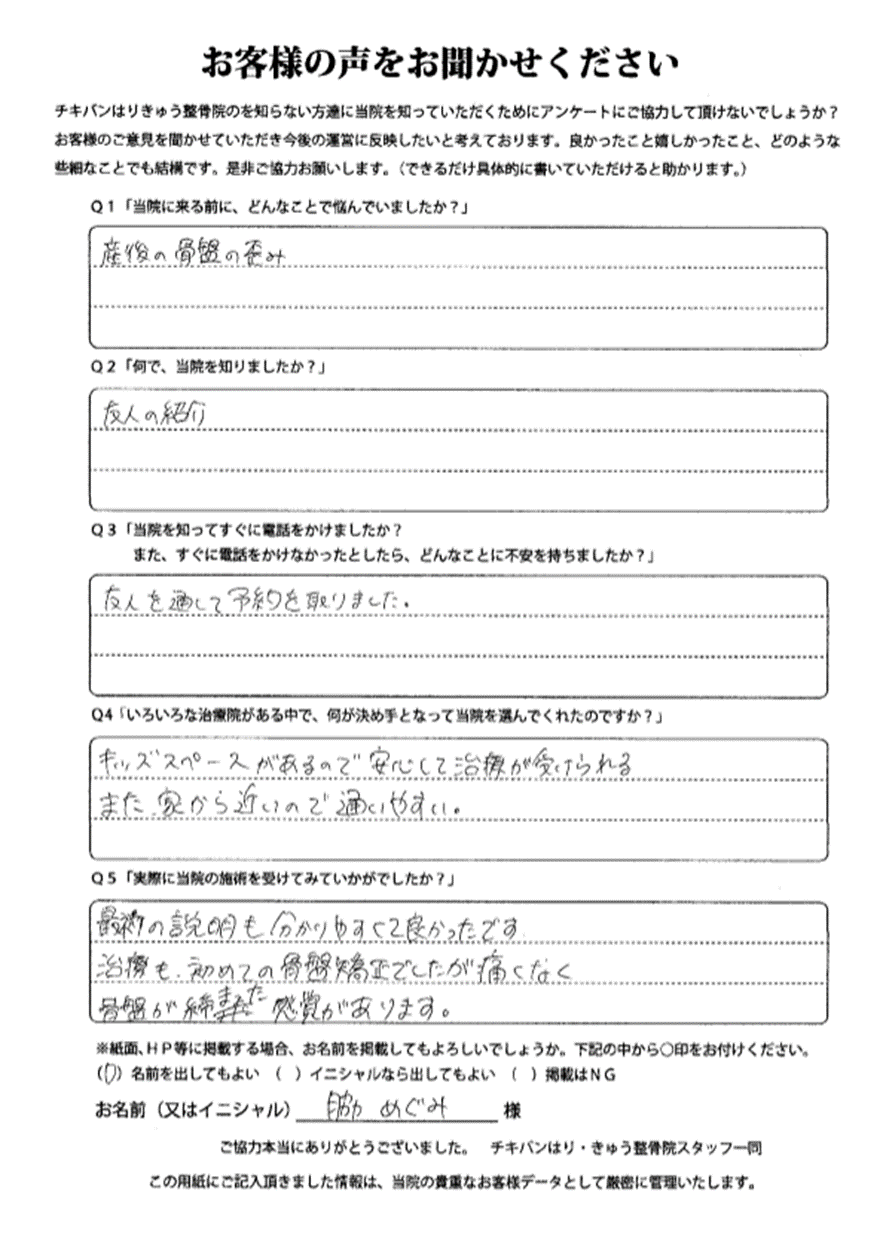 お客様の声をお聞かせください
チキバンはりきゅう整骨院のを知らない方達に当院を知っていただくためにアンケートにご協力して頂けないでしょうか？
お客様のご意見を聞かせていただき今後の運営に反映したいと考えております。良かったこと嬉しかったこと、どのような
些細なことでも結構です。是非ご協力お願いします。（できるだけ具体的に書いていただけると助かります。）
Q１「当院に来る前に、どんなことで悩んでいましたか？」
産後の骨盤の歪み
Q２「何で、当院を知りましたか？」
友人の紹介
Q３「当院を知ってすぐに電話をかけましたか？
また、すぐに電話をかけなかったとしたら、どんなことに不安を持ちましたか？」
友人を通して予約を取りました。
Q4「いろいろな治療院がある中で、何が決め手となって当院を選んでくれたのですか？」
キッズスペースがあるので安心して治療が受けられる
また、家から近いので通いやすい。
Q５「実際に当院の施術を受けてみていかがでしたか？」
最初の説明も分かりやすくて良かったです
治療も、初めての骨盤矯正でしたが痛くなく
骨盤が締まった感覚があります。
※紙面、HP等に掲載する場合、お名前を掲載してもよろしいでしょうか。下記の中から○印をお付けください。
（○）名前を出してもよい （ ）イニシャルなら出してもよい （ ）掲載はNG
お名前（又はイニシャル） 脇 めぐみ 様
ご協力本当にありがとうございました。 チキバンはり・きゅう整骨院スタッフ一同
この用紙にご記入頂きました情報は、当院の貴重なお客様データとして厳密に管理いたします。